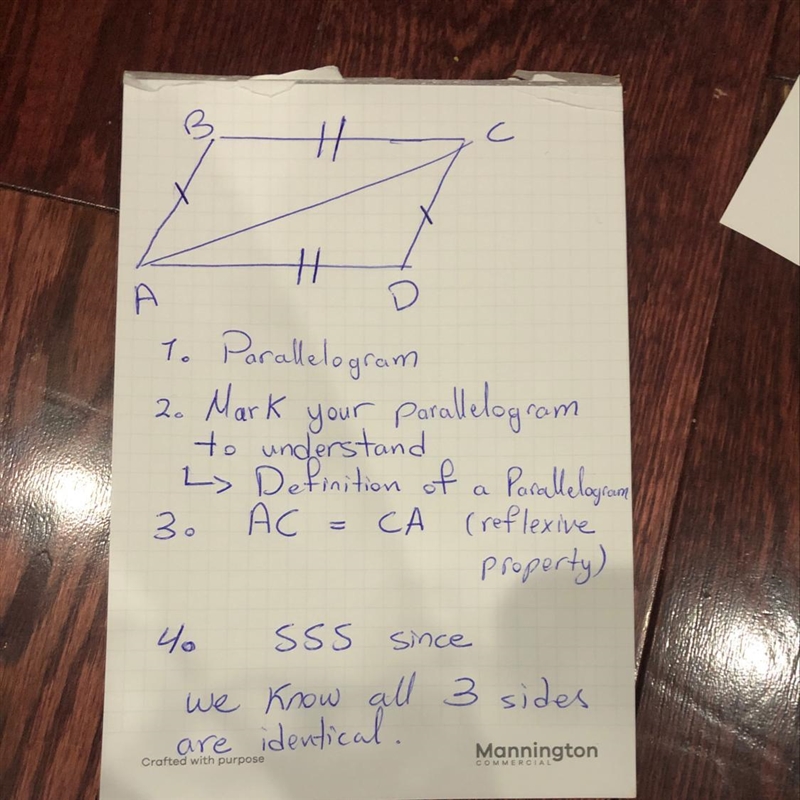 B
C
A
D
1. Parallelogram
2. Mark your parallelogram
to understand
↳ Definition of a Parallelogram
3. AC = CA (reflexive
property)
4. SSS since
we know all 3 sides
are identical.
Crafted with purpose
Mannington
COMMERCIAL